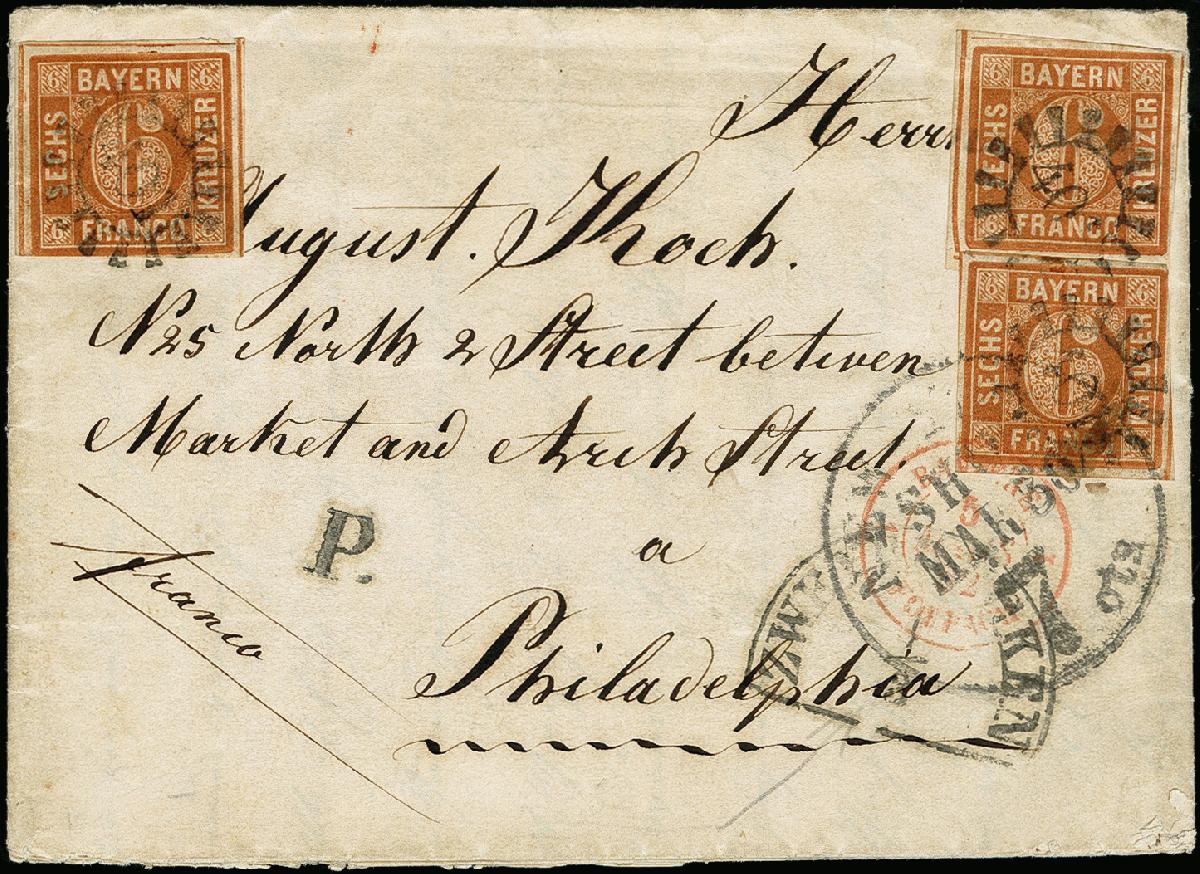 6 BAYERN 6
SECHS 6 KREUZER
6 FRANCO 6
6 BAYERN 6
SECHS 6 KREUZER
6 FRANCO 6
6 BAYERN 6
SECHS 6 KREUZER
FRANCO
Herrn
August. Koch.
N25 North 2 Street betwen
Market and Arch Street.
a
Philadelphia
franco
P.
NEW
MAR 30
7